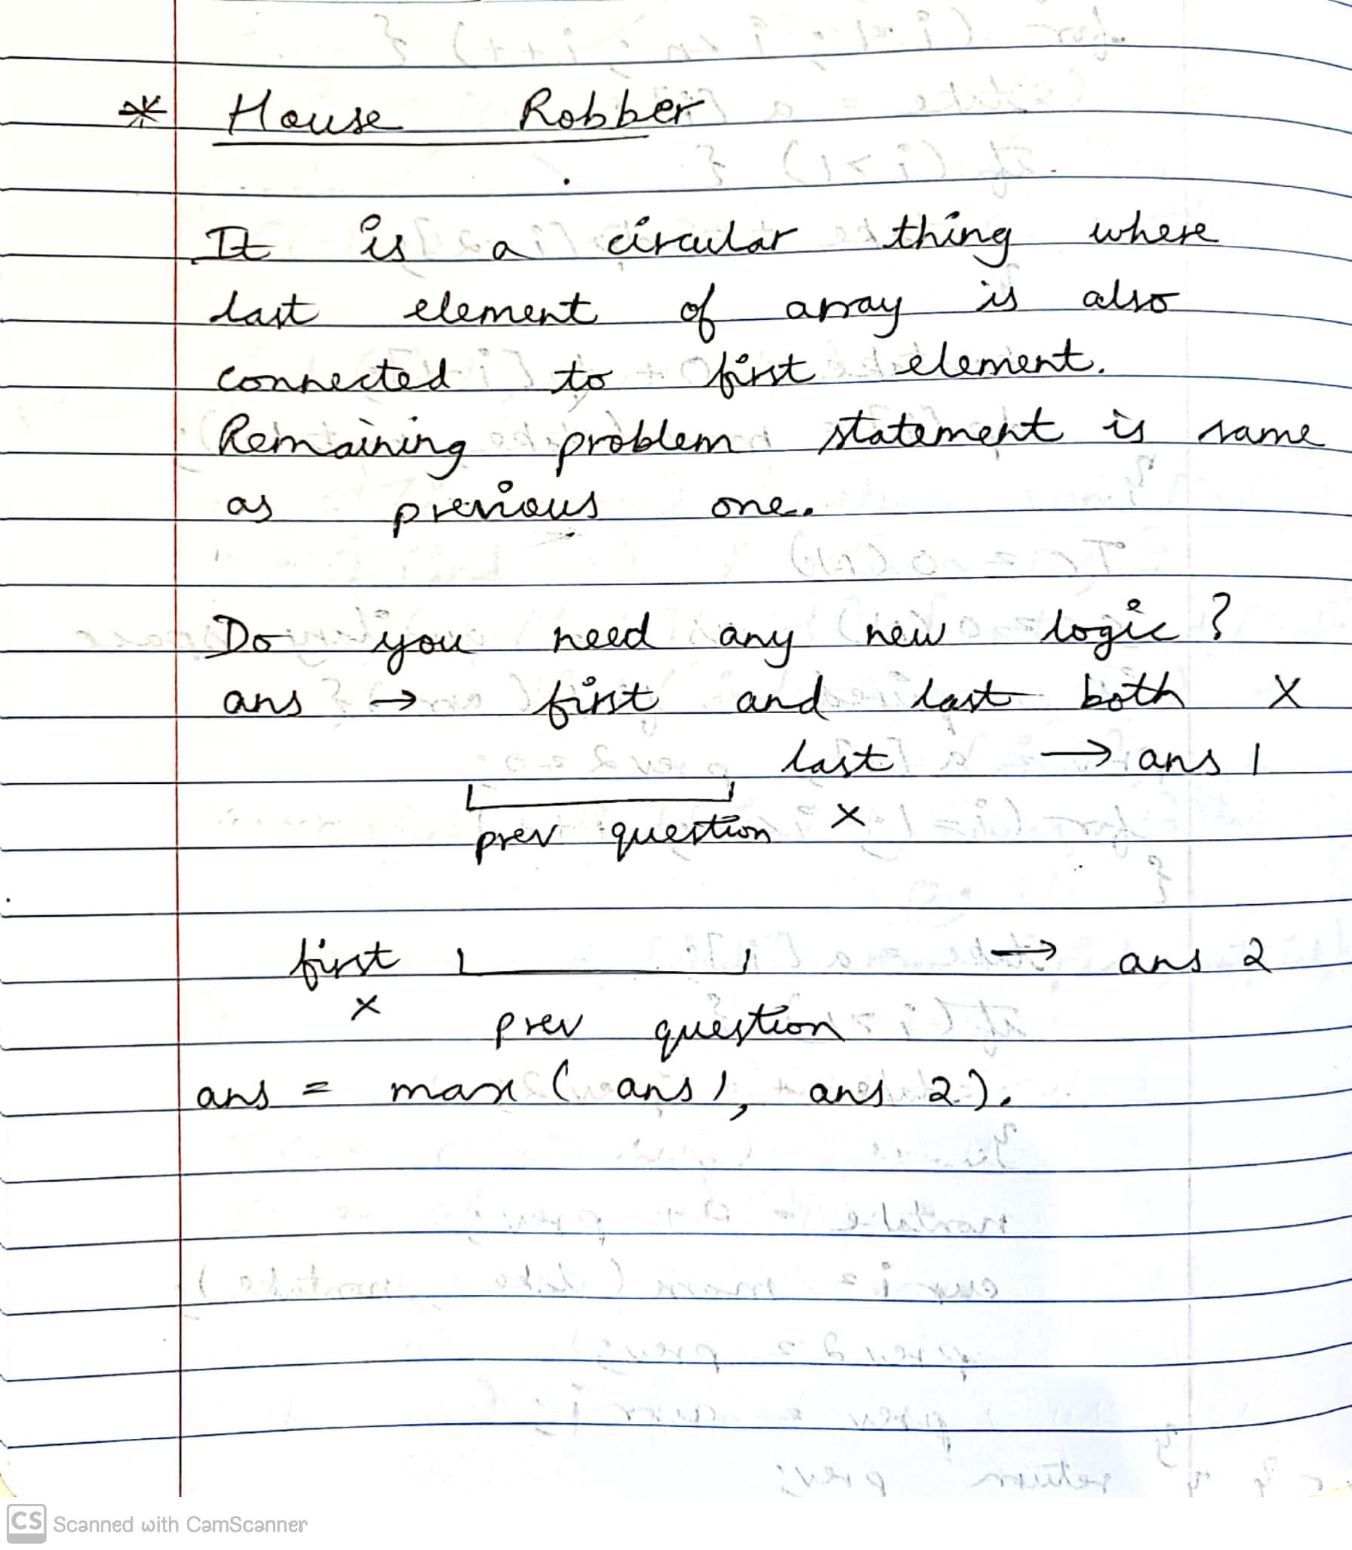 * House Robber
It is a circular thing where
last element of array is also
connected to first element.
Remaining problem statement is same
as previous one.
Do you need any new logic?
ans → first and last both X
last → ans 1
prev question X
first → ans 2
X
prev question
ans = max ( ans 1, ans 2 ).
CS Scanned with CamScanner